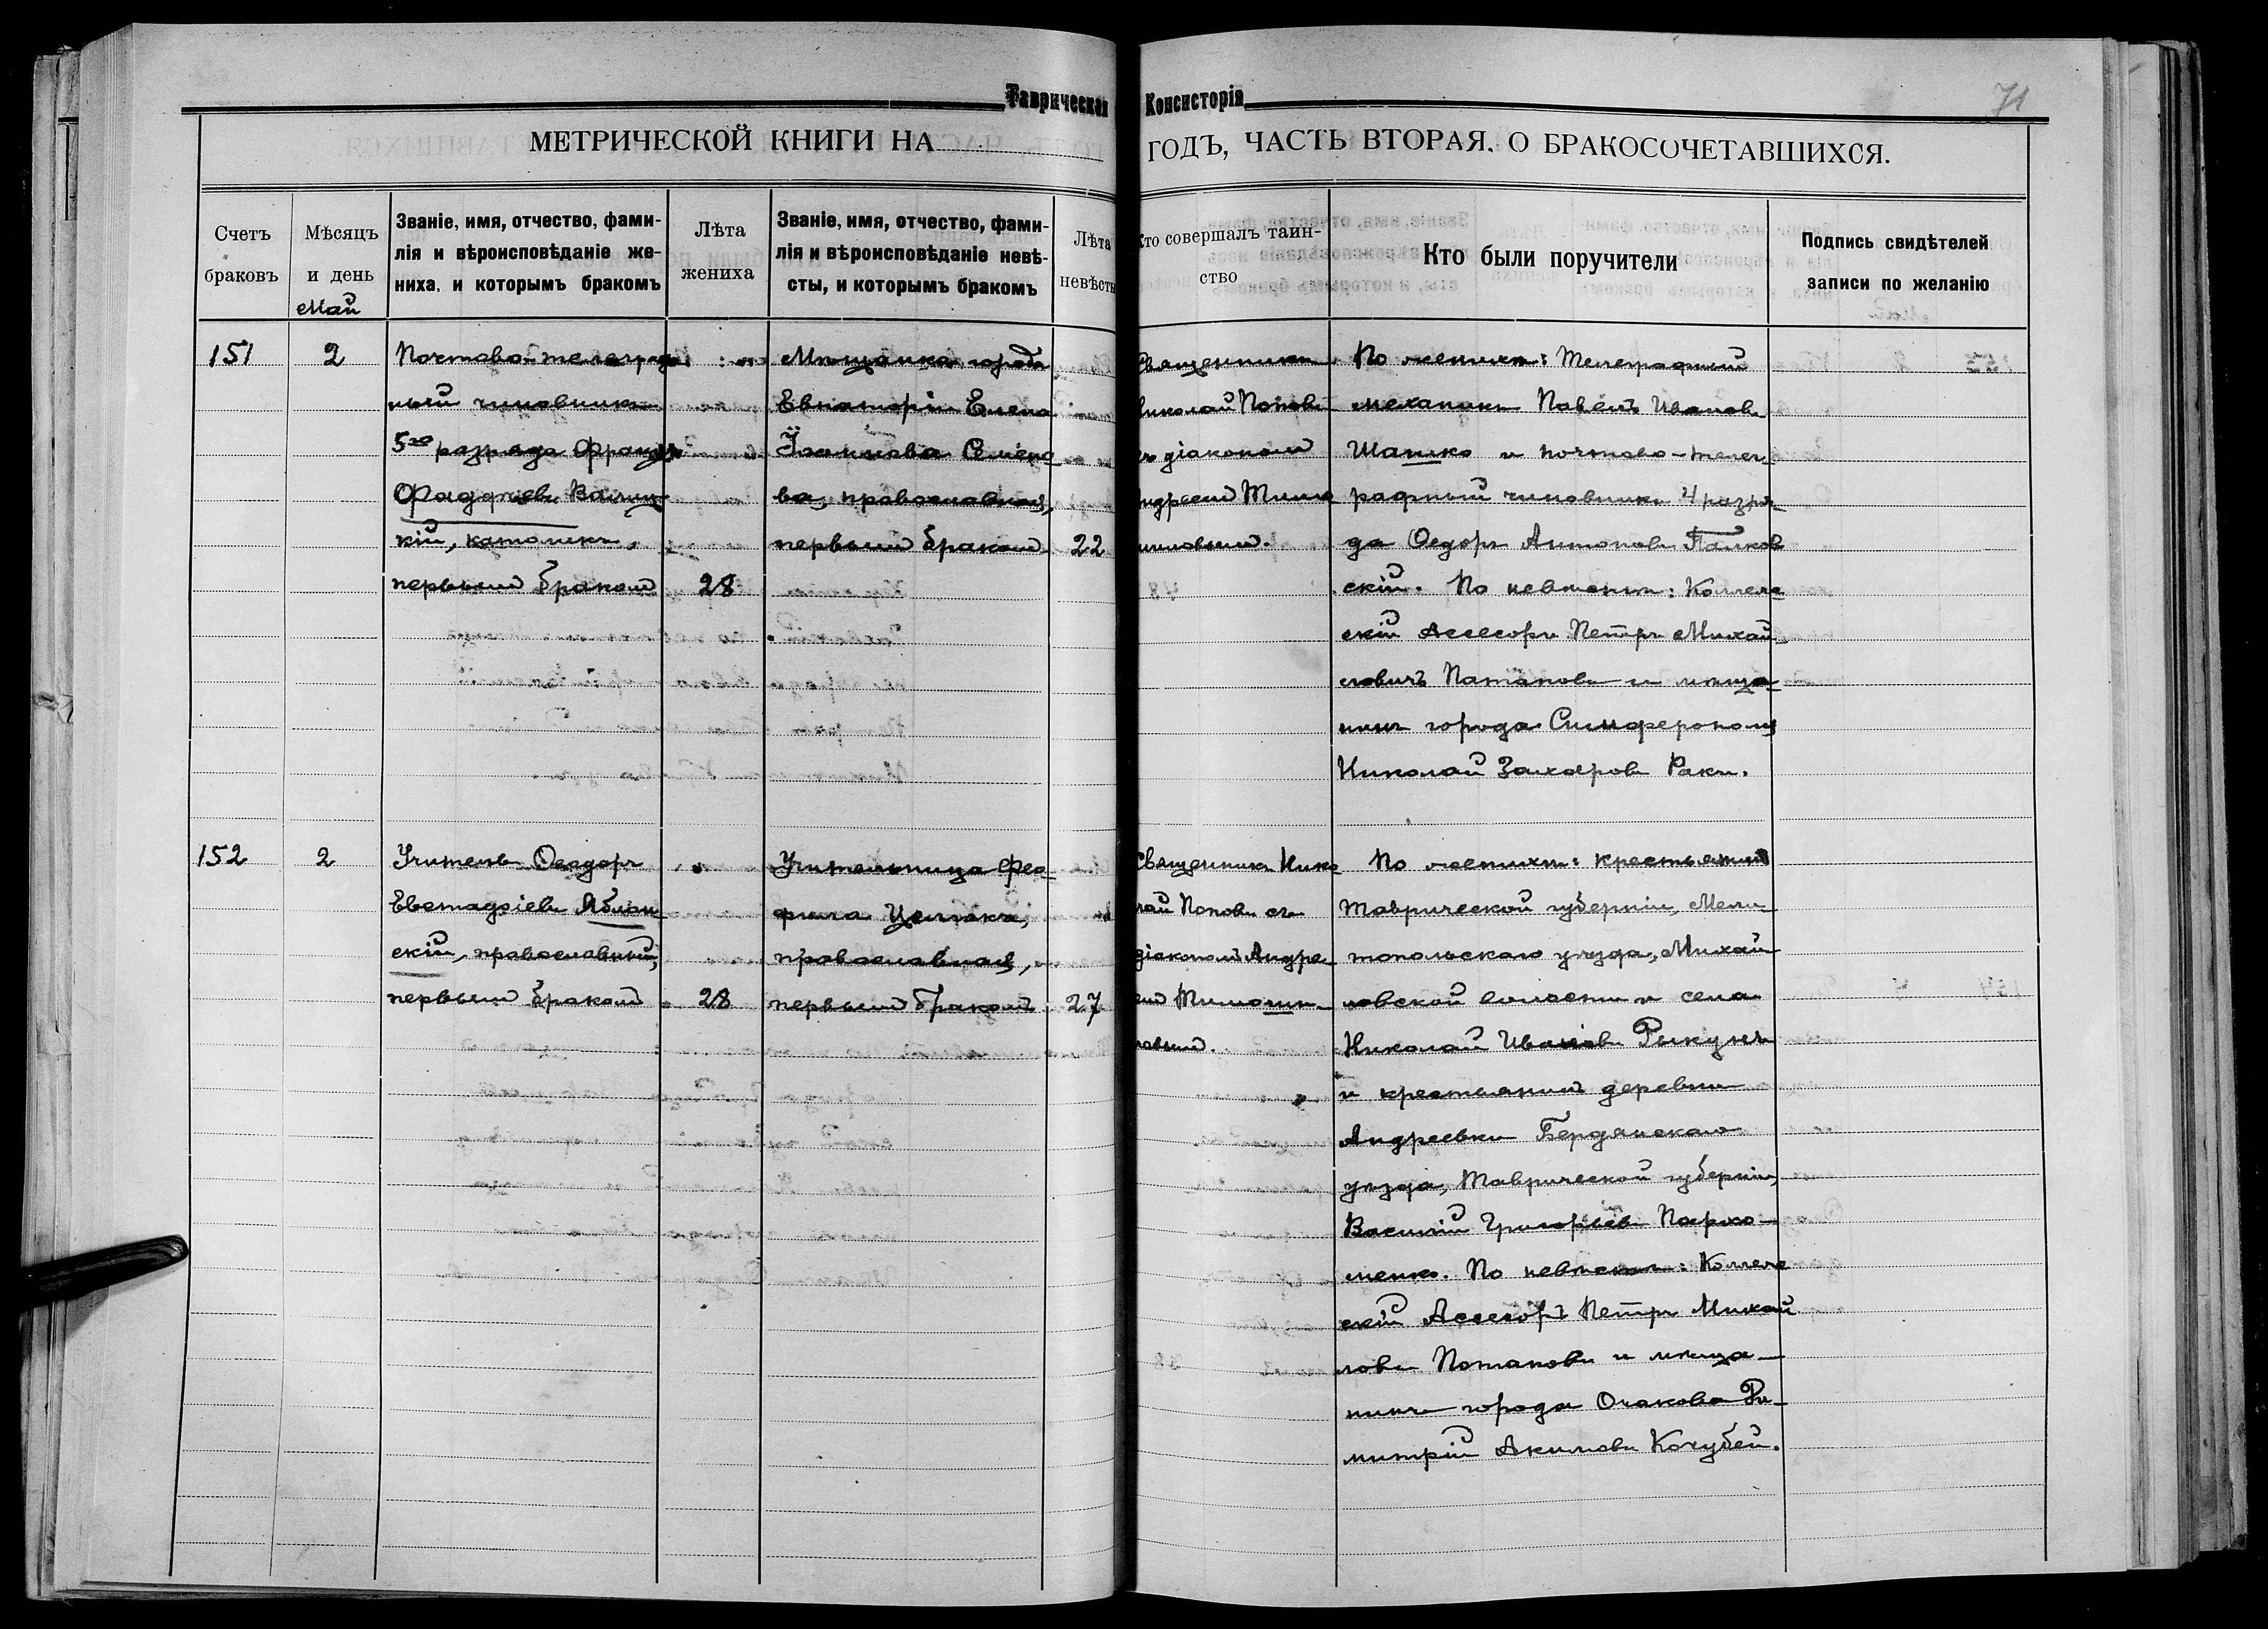 Таврическая Консисторія
71
МЕТРИЧЕСКОЙ КНИГИ НА ГОДЪ, ЧАСТЬ ВТОРАЯ, О БРАКОСОЧЕТАВШИХСЯ.
Счетъ
браковъ
Мѣсяцъ
и день
Май
Званіе, имя, отчество, фами-
лія и вѣроисповѣданіе же-
ниха, и которымъ бракомъ
Лѣта
жениха
Званіе, имя, отчество, фами-
лія и вѣроисповѣданіе невѣ-
сты, и которымъ бракомъ
Лѣта
невѣсты
Кто совершалъ таин-
ство
Кто были поручители
Подпись свидѣтелей
записи по желанію
151
2
Почтово-телеграф
ный чиновникъ
5го разряда Францъ
Фаддѣевъ
кій, католикъ,
первымъ бракомъ
28
Мѣщанка города
Евпаторіи Елена
Іоаннова Семено
ва, православная,
первымъ бракомъ
22
Священникъ
Николай Поповъ
съ діакономъ
Андреемъ
По женихѣ: Телеграфный
механикъ Павелъ Ивановъ
Шапко и почтово-телег
рафный чиновникъ 4 разря
да Ѳедоръ Антоновъ Палков
скій. По невѣстѣ: Коллеж
скій Асессоръ Петръ Михай
ловичъ Патаповъ и мѣща
нинъ города Симферополя
Николай Захаровъ Ракъ.
152
2
Учитель Ѳеодоръ
Евстафіевъ Яблон
скій, православный,
первымъ бракомъ
28
Учительница Фео
фила
православная,
первымъ бракомъ
27
Священникъ Нико
лай Поповъ съ
діакономъ Андре
емъ Тимошин
овымъ.
По женихѣ: крестьянинъ
Таврической губерніи, Мели
топольскаго уѣзда, Михай
ловской волости и села
Николай Ивановъ Рыкунъ
и крестьянинъ деревни
Андреевки Бердянскаго
уѣзда, Таврической губерніи,
Василій Григорьевъ Пархо-
менко. По невѣстѣ: Коллеж
скій Асессоръ Петръ Михай
ловъ Потаповъ и мѣща-
нинъ города Очакова Ди-
митрій Акимовъ Кочубей.